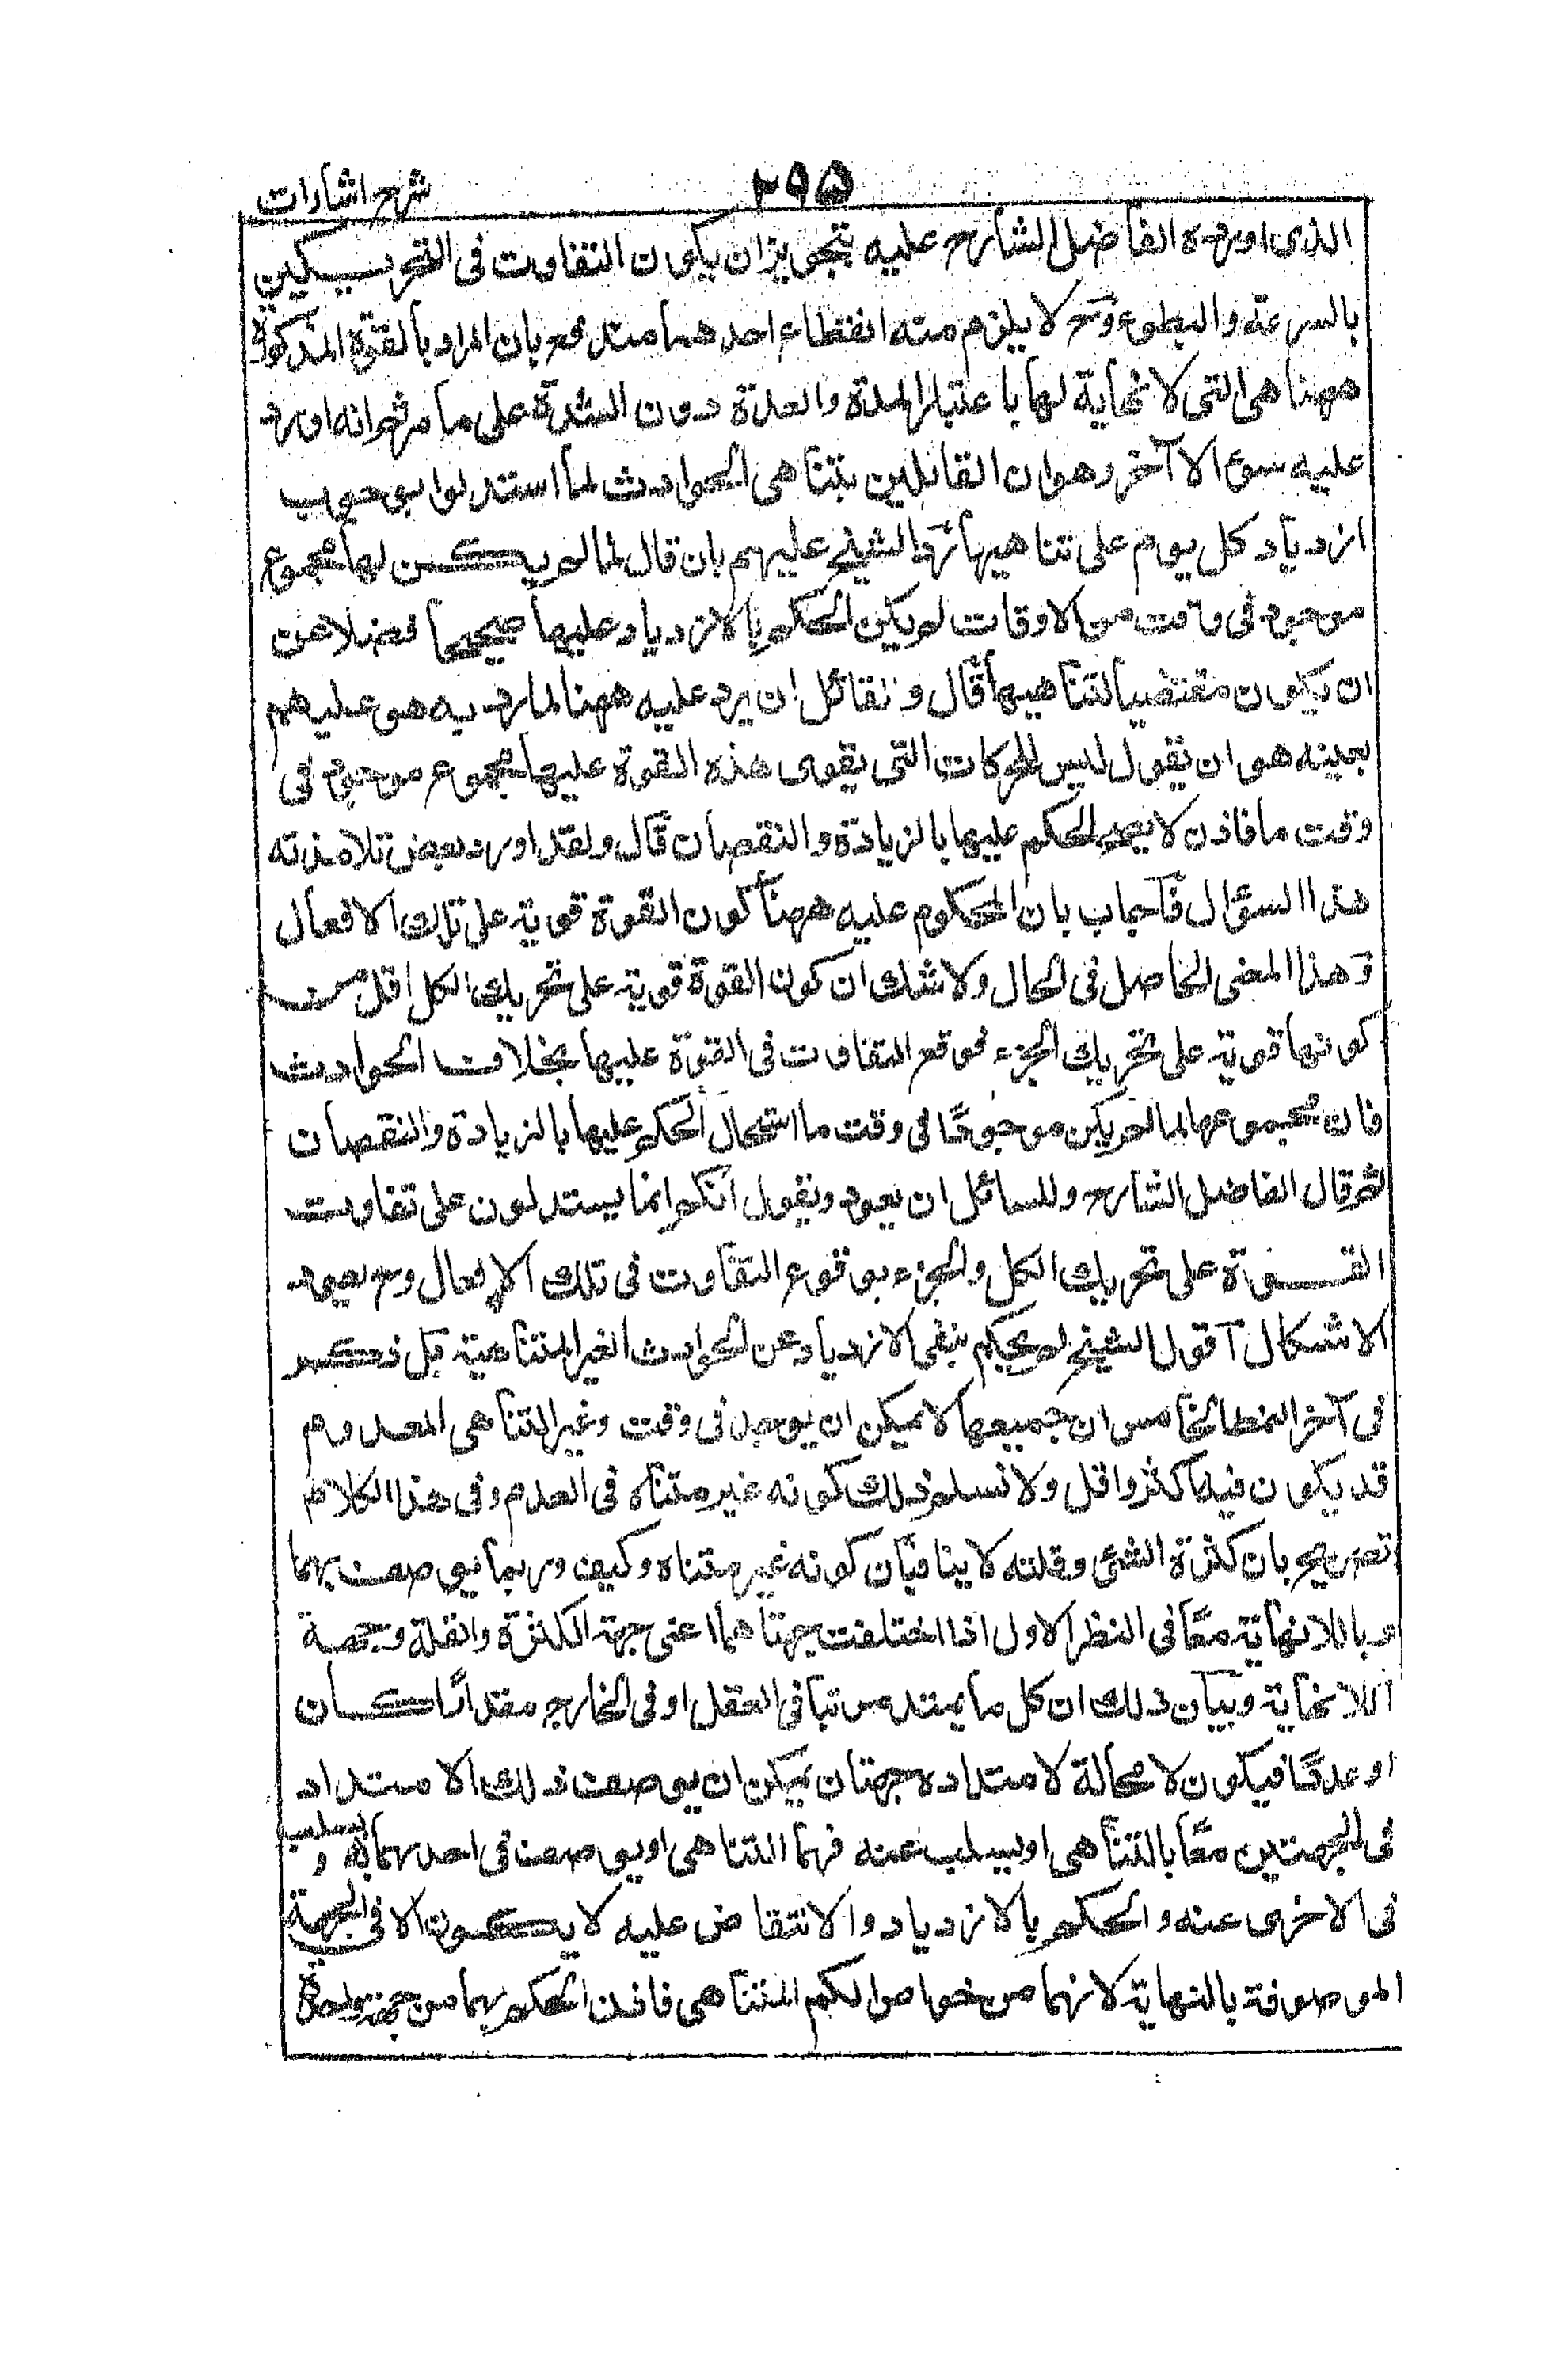 شرح اشارات
٢٩٥
الذی اورده الفاضل الشارح علیه بتجویزان یکون التفاوت فی التحریکین
بالسرعة والبطوء وح لا یلزم منه انقطاع احدهما مندفع بان المراد بالقوة المذکورة
ههنا هی التی لا نهایة لها باعتبار المدة والعدة دون الشدة علی ما مر ثم انه اورد
علیه سوالا آخر وهو ان القائلین بتناهی الحوادث لما استدلوا بوجوب
ازدیاد کل یوم علی تناهیها رد الشیخ علیهم بان قال لما لم یکن لها مجموع
موجود فی وقت من الاوقات لم یکن الحکم بالازدیاد علیها صحیحا فضلا عن
ان یکون مقتضیا لتناهیها قال ولقائل ان یرد علیه ههنا لما رد به هو علیهم
بعینه هو ان یقول لیس للحرکات التی یقوی هذه القوة علیها مجموع موجود فی
وقت ما فاذن لا یصح الحکم علیها بالزیادة والنقصان قال ولقد اورد بعض تلامذته
هذا السؤال فاجاب بان المحکوم علیه ههنا کون القوة قویة علی تلك الافعال
وهذا المعنی الحاصل فی الحال ولا شك ان کون القوة قویة علی تحریك الکل اقل من
کونها قویة علی تحریك الجزء فوقع التفاوت فی القوة علیها بخلاف الحوادث
فان مجموعها لما لم یکن موجودا فی وقت ما استحال الحکم علیها بالزیادة والنقصان
ثم قال الفاضل الشارح وللسائل ان یعود ویقول انکم انما یستدلون علی تفاوت
القوة علی تحریك الکل والجزء بوقوع التفاوت فی تلك الافعال وح یعود
الاشکال آقول الشیخ لم یحکم بنفی الازدیاد عن الحوادث الغیر المتناهیة بل ذکر
فی آخر النمط الخامس ان جمیعها لا یمکن ان یوجد فی وقت وغیر المتناهی المعدوم
قد یکون فیه اکثر واقل ولا نسلم ذلك کونه غیر متناه فی العدم وفی هذا الکلام
تصریح بان کثرة الشئ وقلته لا ینافیان کونه غیر متناه وکیف وربما یوصف بهما
وباللانهایة معا فی النظر الاول اذا اختلفت جهتاهما اعنی جهة الکثرة والقلة وجهة
اللانهایة وبیان ذلك ان کل ما یمتد مرتبا فی العقل او فی الخارج مقدارا کان
او عددا فیکون لا محالة لامتداده جهتان یمکن ان یوصف ذلك الامتداد
فی الجهتین معا بالتناهی او یسلب عنه فیهما التناهی او یوصف فی احدهما به و یسلب
فی الاخری عنه والحکم بالازدیاد والانتقاص علیه لا یکون الا فی الجهة
الموصوفة بالنهایة لانهما من خواص الکم المتناهی فاذن الحکم بهما من جهة واحدة